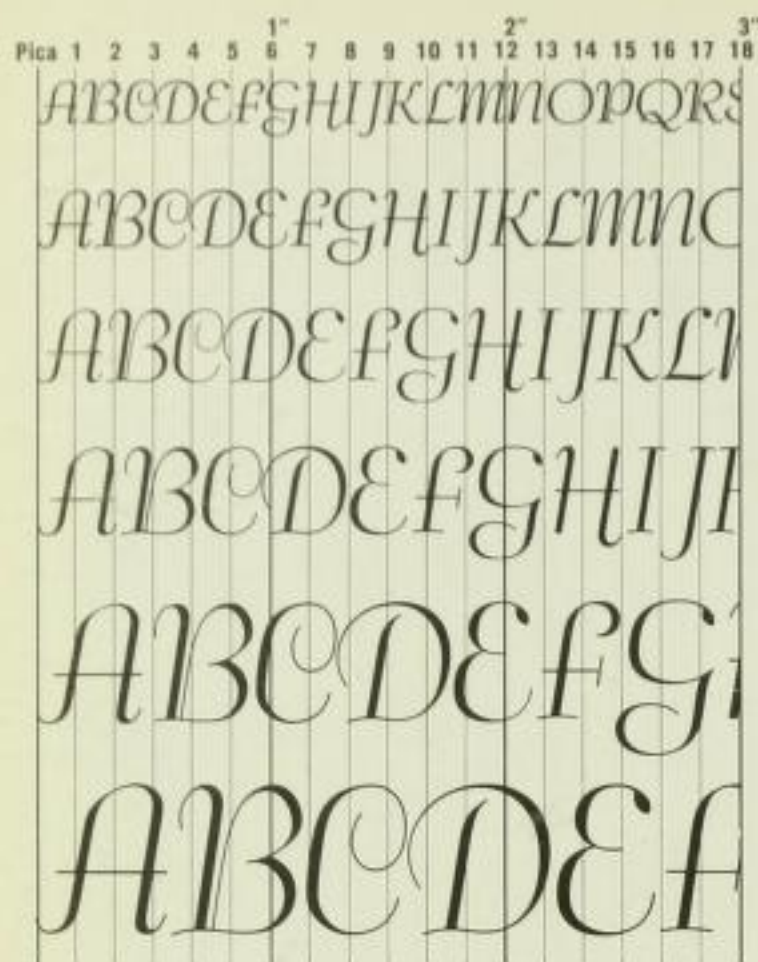 1" 2" 3"
Pica 1 2 3 4 5 6 7 8 9 10 11 12 13 14 15 16 17 18
ABCDEFGHIJKLMNOPQRS
ABCDEFGHIJKLMNO
ABCDEFGHIJKL
ABCDEFGHIJ
ABCDEFG
ABCDEF